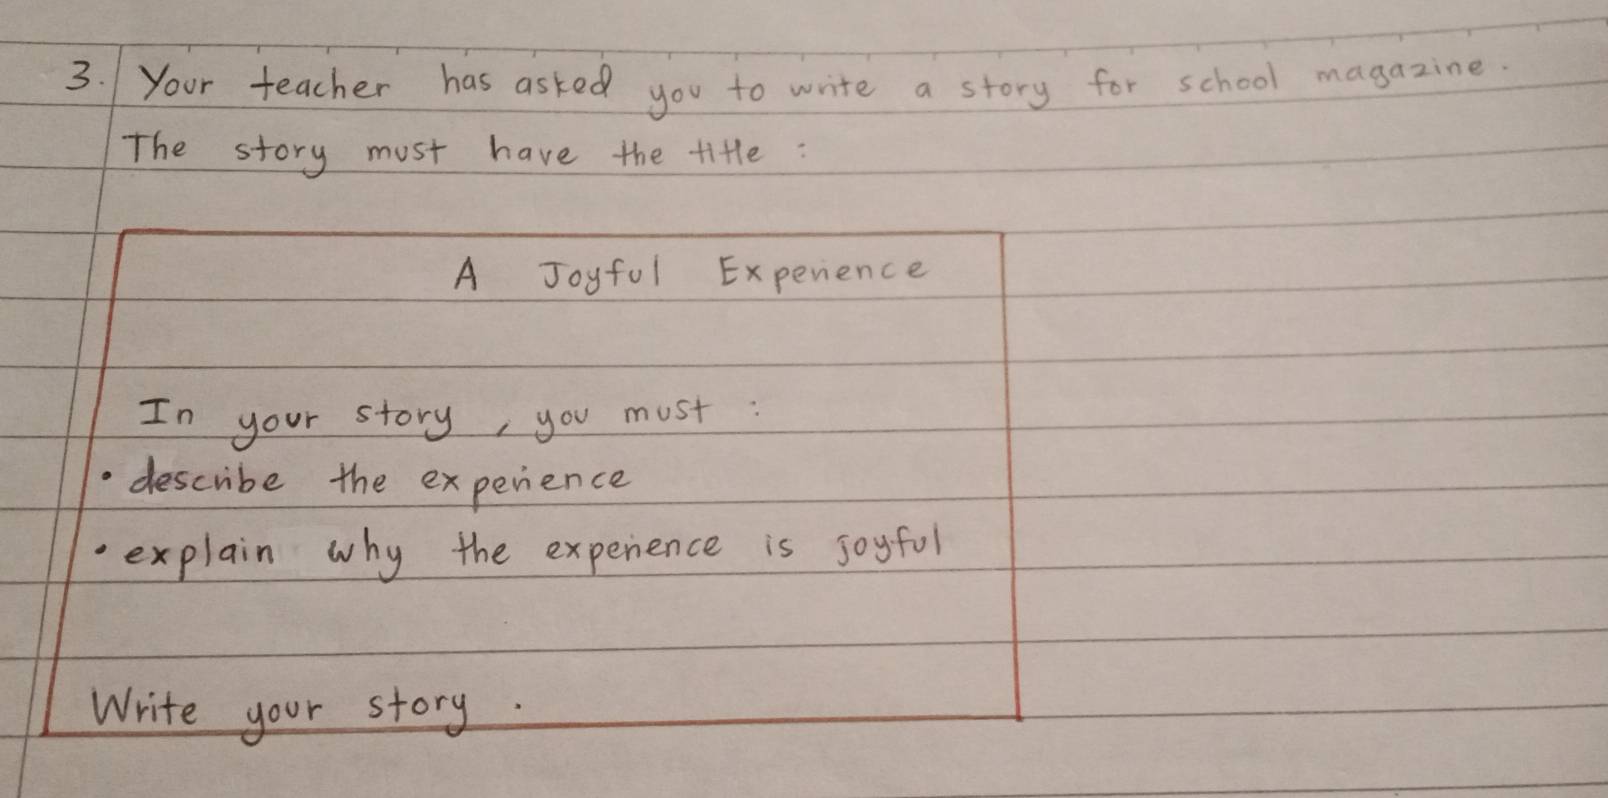 3. Your teacher has asked you to write a story for school magazine.
The story must have the title :
A Joyful Experience
In your story, you must :
• describe the experience
• explain why the experience is joyful
Write your story.